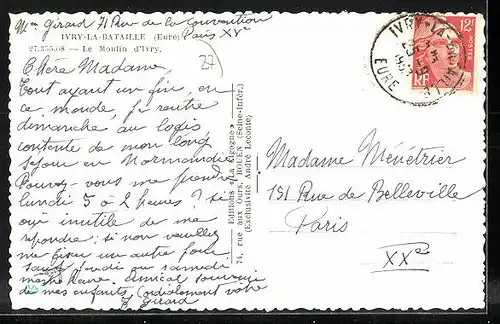 Mme Girard 71 Rue de la Convention
Paris XVe
IVRY-LA-BATAILLE (Eure)
27.355.08 — Le Moulin d'Ivry.
27
Chère Madame,
Tout ayant un fin, en
ce monde, je rentre
dimanche au logis
contente de mon long
séjour en Normandie
Pouvez-vous me prendre
lundi 5 à 2 heures ? si
oui inutile de me
répondre ; si non veuillez
me fixer un autre jour
sauf lundi ou samedi
Amical souvenir
de mes enfants. Cordialement vôtre
J. Girard
Editions « La Cigogne »
74, rue aux Ours, ROUEN (Seine-Infér.)
(Exclusivité André Leconte)
IVRY-LA-BATAILLE
EURE
12F
POSTES
RF
Madame Ménétrier
151 Rue de Belleville
Paris
XXe